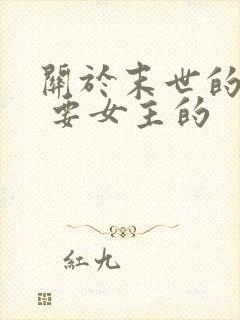 關於末世的
要女主的
紅九